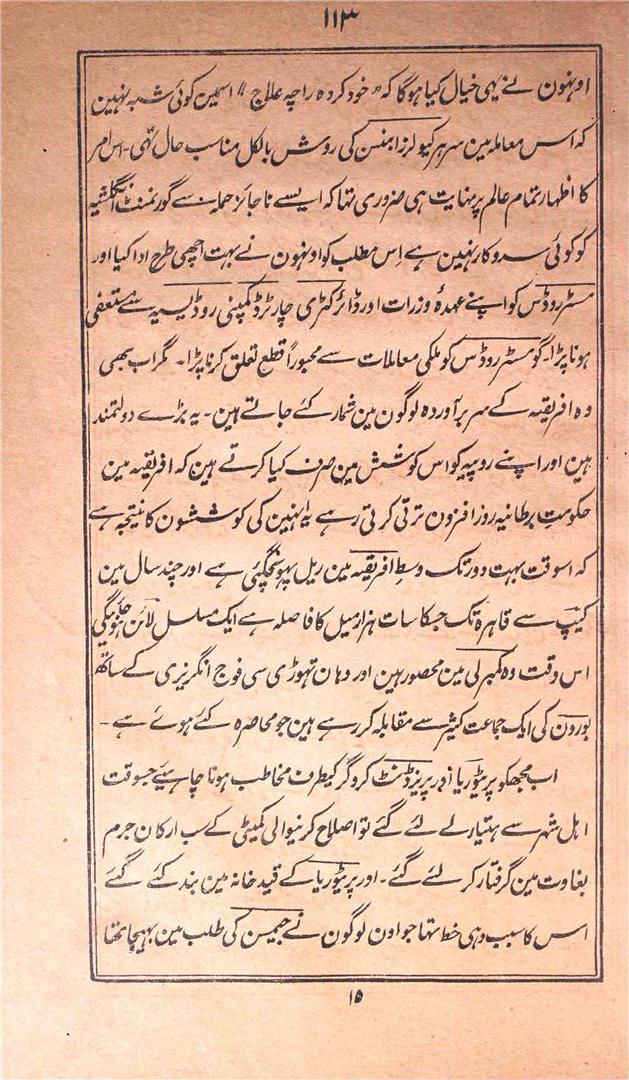 ۱۱۳
اونہون نے یہی خیال کیا ہوگا کہ "خود کردہ را چہ علاج" اسمین کوئی شبہ نہین
کہ اس معاملہ مین سر ہرکیولز رابنسن کی روش بالکل مناسب حال تہی۔ اس امر
کا اظہار تمام عالم پر نہایت ہی ضروری تہا کہ ایسے ناجائز حملہ سے گورنمنٹ انگلشیہ
کو کوئی سروکار نہین ہے اِس مطلب کو اونہون نے بہت اچھی طرح ادا کیا اور
مسٹر روڈس کو اپنے عہدۂ وزرات اور ڈائرکٹری چارٹرڈ کمپنی روڈیسیہ سے مستعفی
ہونا پڑا۔ گو مسٹر روڈس کو ملکی معاملات سے مجبوراً قطع تعلق کرنا پڑا۔ مگر اب بھی
وہ افریقہ کے سربرآوردہ لوگون مین شمار کئے جاتے ہین۔ یہ بڑے دولتمند
ہین اور اپنے روپیہ کو اس کوشش مین صرف کیا کرتے ہین کہ افریقہ مین
حکومتِ برطانیہ روز افزون ترقی کرتی رہے یہ انہین کی کوششون کا نتیجہ ہے
کہ اسوقت بہت دور تک وسطِ افریقہ مین ریل پہونچگئی ہے اور چند سال مین
کیپ سے قاہرہ تک جسکا سات ہزار میل کا فاصلہ ہے ایک مسلسل لائن ہوجائیگی
اس وقت وہ کمبرلی مین محصور ہین اور وہان تہوڑی سی فوج انگریزی کے ساتھ
بورون کی ایک جماعت کثیر سے مقابلہ کر رہے ہین جو محاصرہ کئے ہوئے ہے۔
اب مجھکو پریٹوریا اور پریزڈنٹ کروگر کیطرف مخاطب ہونا چاہیئے جسوقت
اہل شہر سے ہتیار لے لئے گئے تو اصلاح کرنیوالی کمیٹی کے سب ارکان جرم
بغاوت مین گرفتار کر لئے گئے۔ اور پریٹوریا کے قیدخانہ مین بند کئے گئے
اس کا سبب وہی خط تہا جو اون لوگون نے جیمسن کی طلب مین بہیجا تھا
۱۵